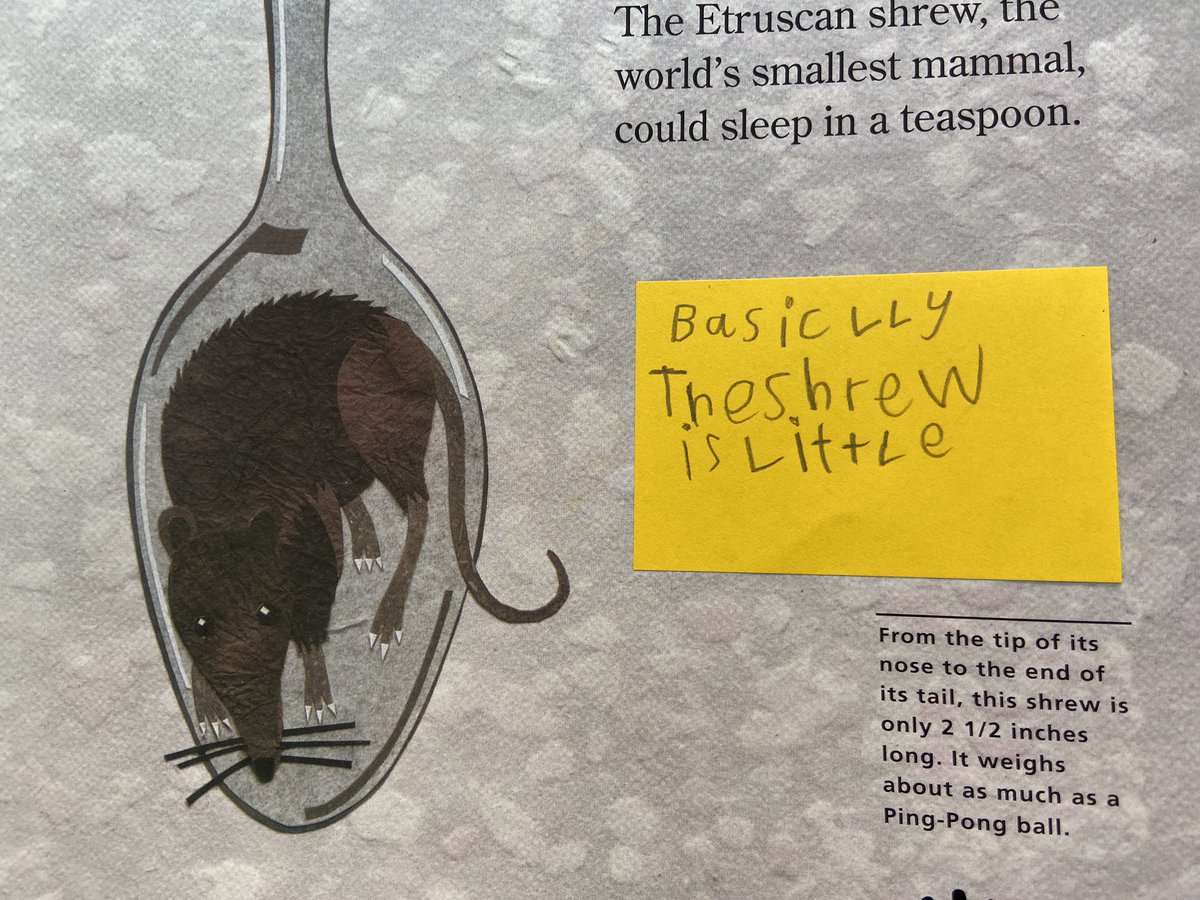 The Etruscan shrew, the
world's smallest mammal,
could sleep in a teaspoon.
Basiclly
The shrew
is Little
From the tip of its
nose to the end of
its tail, this shrew is
only 2 1/2 inches
long. It weighs
about as much as a
Ping-Pong ball.